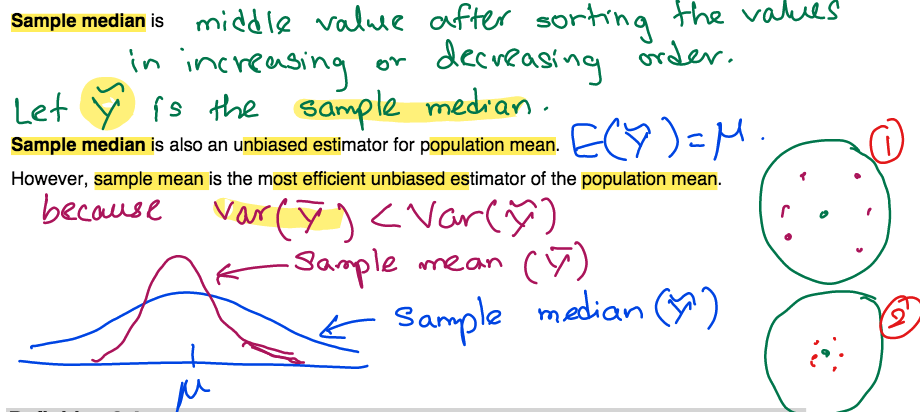 Sample median is middle value after sorting the values
in increasing or decreasing order.
Let Y̌ is the sample median.
Sample median is also an unbiased estimator for population mean. E(Y̌) = μ.
However, sample mean is the most efficient unbiased estimator of the population mean.
because Var(Ȳ) < Var(Y̌)
Sample mean (Ȳ)
Sample median (Y̌)
μ
1
2